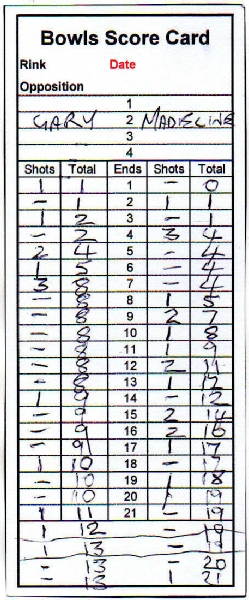 Bowls Score Card
Rink Date
Opposition
1
GARY 2 MADIELINE
3
4
Shots Total Ends Shots Total
1 1 1 - 0
- 1 2 1 1
1 2 3 - 1
- 2 4 3 4
2 4 5 - 4
1 5 6 - 4
3 8 7 - 4
- 8 8 1 5
- 8 9 2 7
- 8 10 1 8
- 8 11 1 9
- 8 12 2 11
- 8 13 1 12
1 9 14 - 12
- 9 15 2 14
- 9 16 2 16
- 9 17 1 17
1 10 18 - 17
- 10 19 1 18
- 10 20 1 19
1 11 21 - 19
1 12 - 19
1 13 - 19
- 13 - 20
- 13 1 21